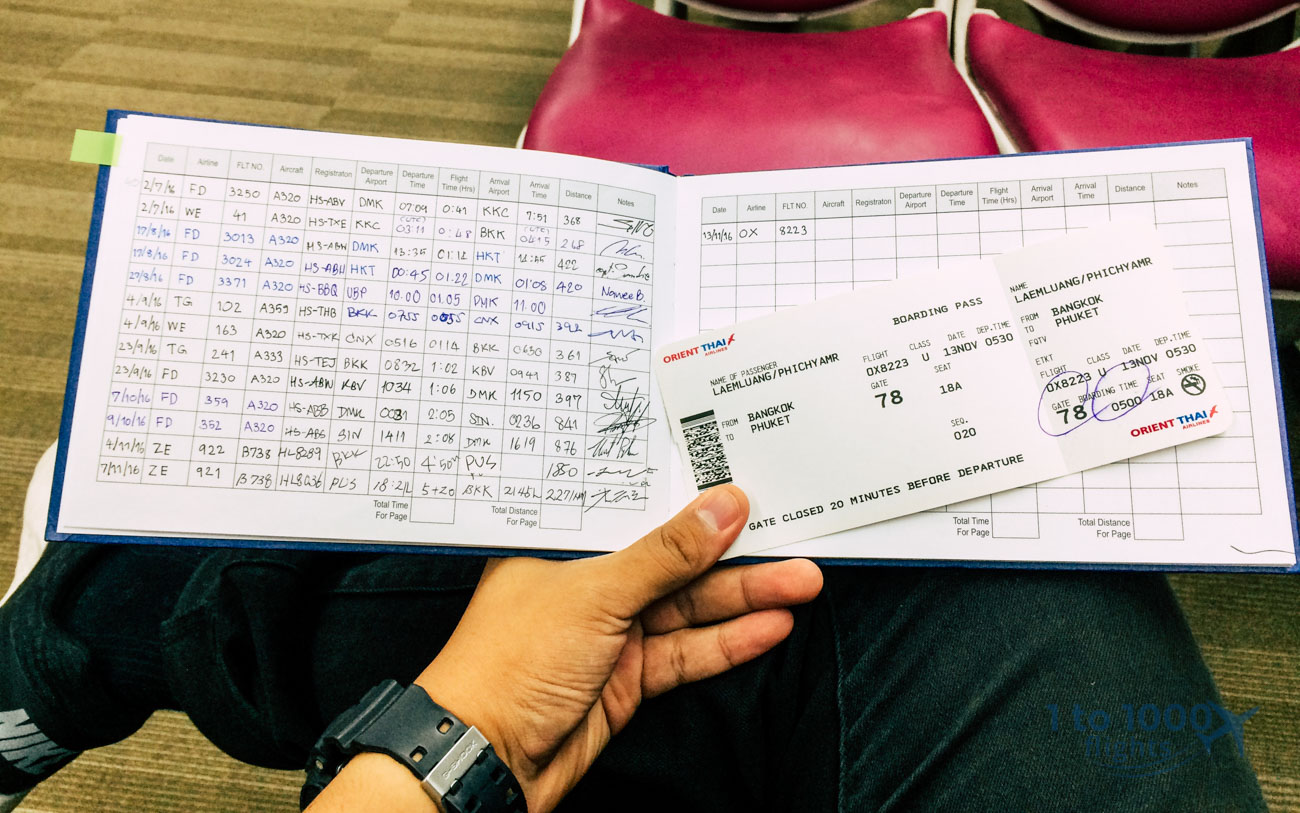 Date Airline FLT NO. Aircraft Registraton Departure Airport Departure Time Flight Time (Hrs) Arrival Airport Arrival Time Distance Notes
2/7/16 FD 3250 A320 HS-ABV DMK 07:09 0:41 KKC 7:51 368
2/7/16 WE 41 A320 HS-TXE KKC 03:11 0:48 BKK 0415 248
17/8/16 FD 3013 A320 HS-ABW DMK 13:35 01:12 HKT 422
17/8/16 FD 3024 A320 HS-ABW HKT 00:45 01.22 DMK 01:08 420
27/8/16 FD 3371 A320 HS-BBQ UBP 10.00 01.05 DMK 11.00 Namee B.
4/9/16 TG 102 A359 HS-THB BKK 0755 CNX 0915 392
4/9/16 WE 163 A320 HS-TXK CNX 0516 0114 BKK 0630 361
23/9/16 TG 241 A333 HS-TEJ BKK 0832 1:02 KBV 0949 387
23/9/16 FD 3230 A320 HS-ABW KBV 1034 1:06 DMK 1150 397
7/10/16 FD 359 A320 HS-ABB DMK 0031 2:05 SIN. 0236 841
9/10/16 FD 352 A320 HS-ABG SIN 1411 2:08 DMK 1619 876
4/11/16 ZE 922 B738 HL8289 BKK 22:50 PUS 1850
7/11/16 ZE 921 B738 HL8036 PUS 18:21L 5+20 BKK 2145L
Total Time For Page Total Distance For Page
Date Airline FLT NO. Aircraft Registraton Departure Airport Departure Time Flight Time (Hrs) Arrival Airport Arrival Time Distance Notes
13/11/16 OX 8223
Total Time For Page Total Distance For Page
ORIENT THAI AIRLINES
BOARDING PASS
NAME OF PASSENGER
LAEMLUANG/PHICHYAMR
FROM BANGKOK
TO PHUKET
FLIGHT CLASS DATE DEP.TIME
OX8223 U 13NOV 0530
GATE SEAT
78 18A
SEQ.
020
GATE CLOSED 20 MINUTES BEFORE DEPARTURE
NAME
LAEMLUANG/PHICHYAMR
FROM BANGKOK
TO PHUKET
FQTV
ETKT
FLIGHT CLASS DATE DEP.TIME
OX8223 U 13NOV 0530
GATE BOARDING TIME SEAT SMOKE
78 0500 18A
ORIENT THAI AIRLINES
G-SHOCK
1 to 1000
flights